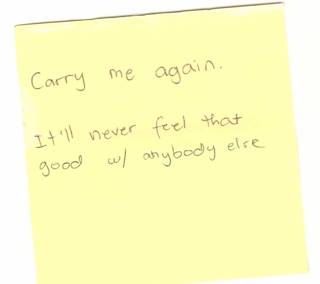 Carry me again.
It'll never feel that
good w/ anybody else